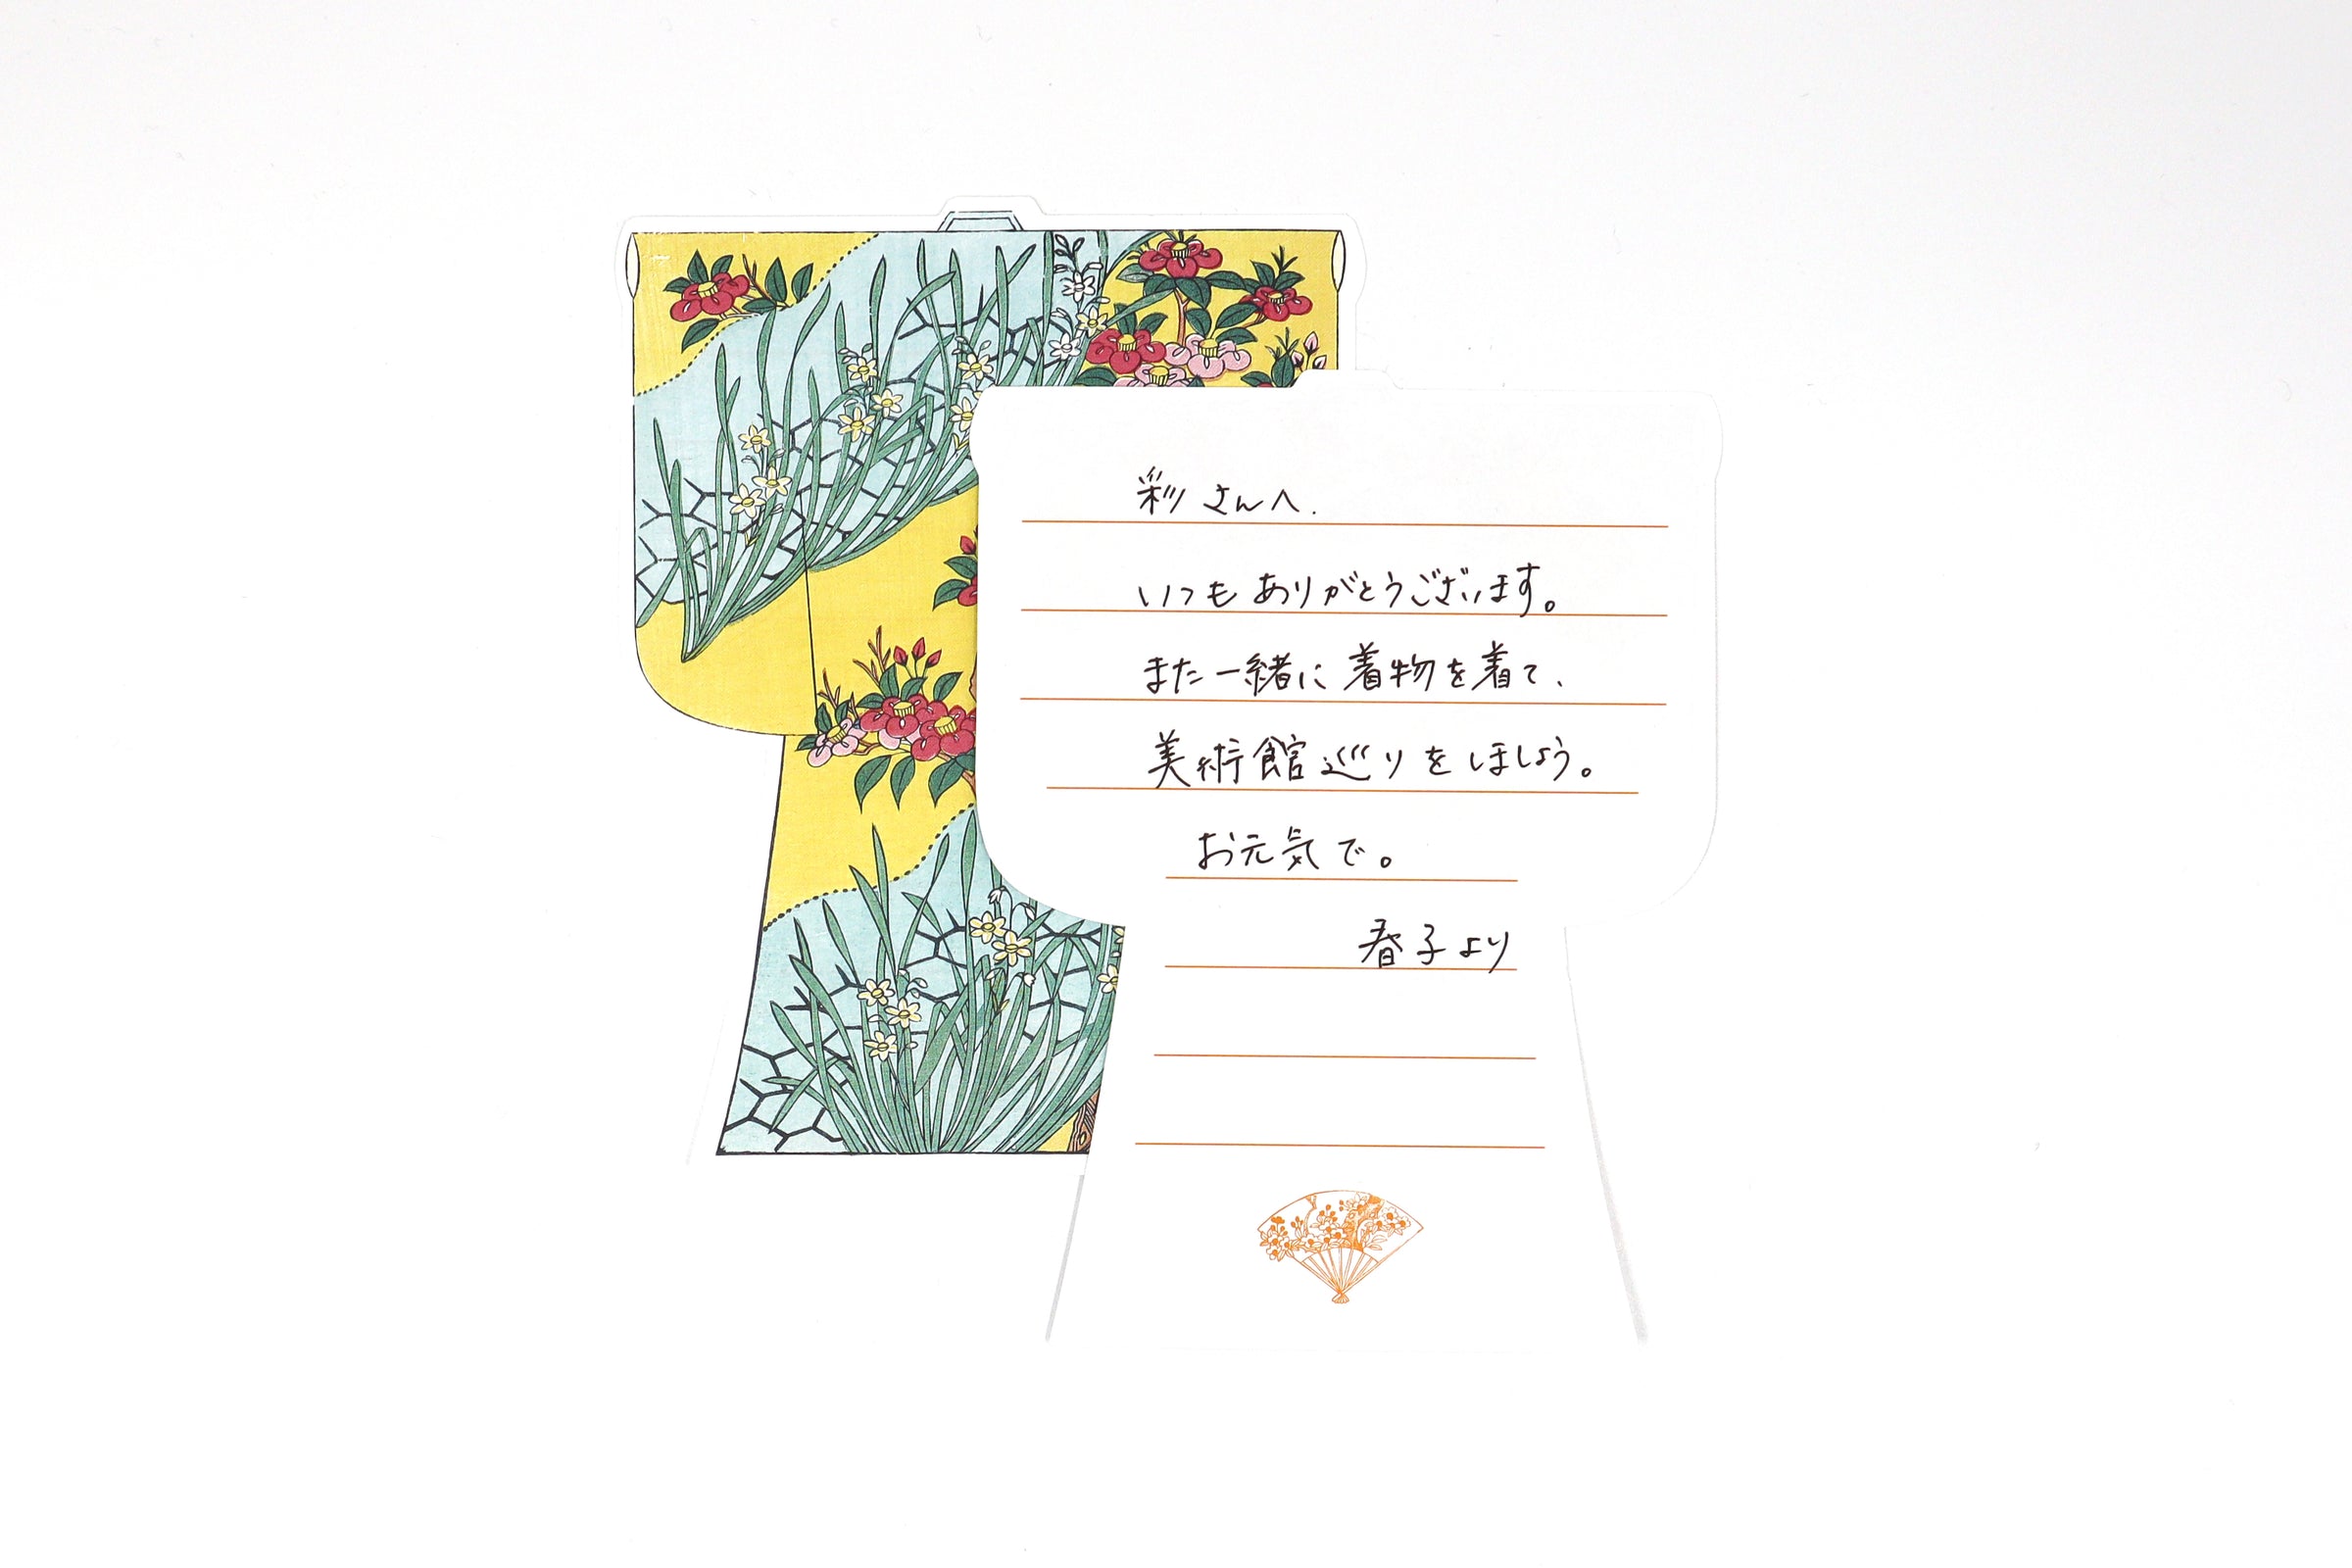 彩さんへ.
いつもありがとうございます。
また一緒に着物を着て、
美術館巡りをしましょう。
お元気で。
春子より